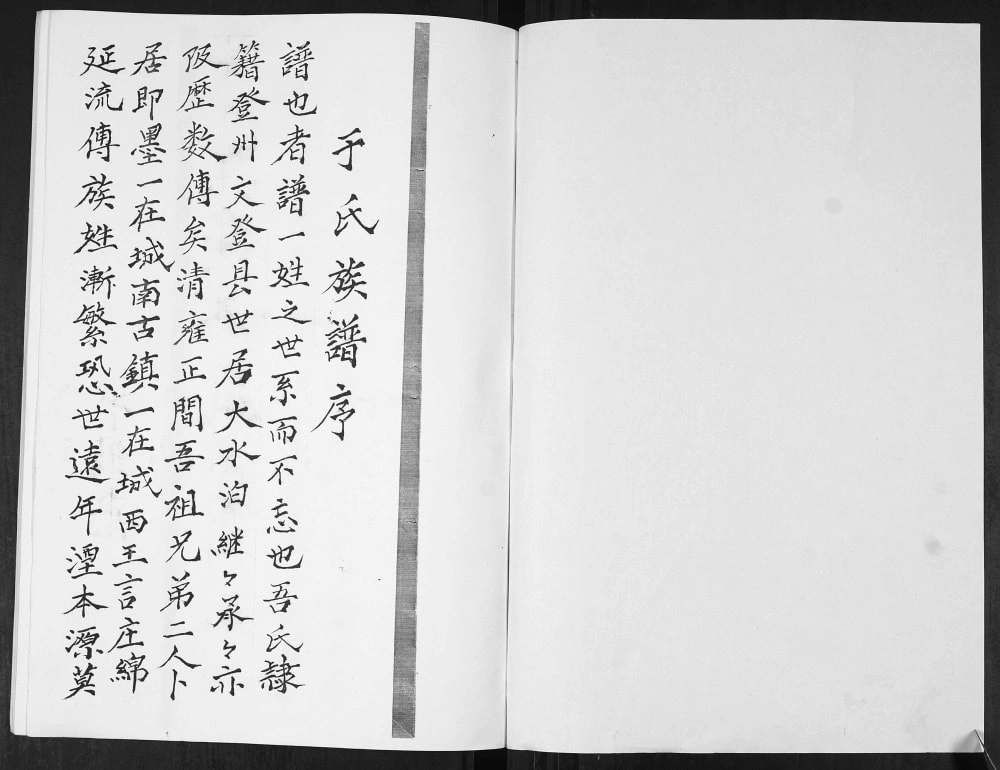 于氏族譜序
譜也者譜一姓之世系而不忘也吾氏隸
籍登州文登县世居大水泊継々承々亦
阪歷数傳矣清雍正間吾祖兄弟二人卜
居即墨一在城南古鎮一在城西王言庄綿
延流傳族姓漸繁恐世遠年湮本源莫